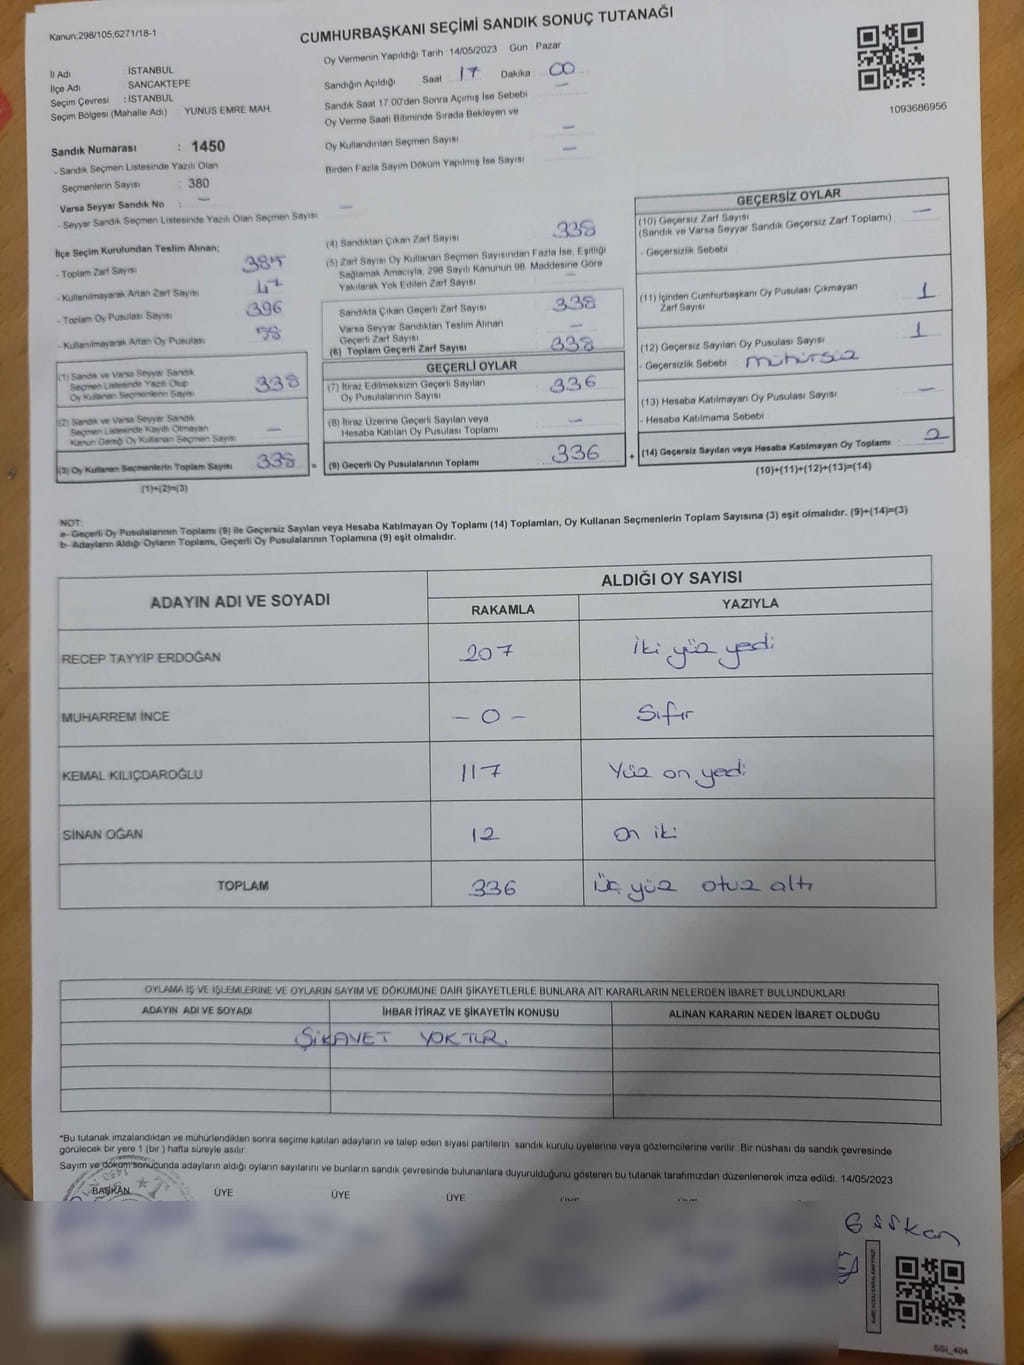 Kanun,298/105,6271/18-1
CUMHURBAŞKANI SEÇİMİ SANDIK SONUÇ TUTANAĞI
Oy Vermenin Yapıldığı Tarih 14/05/2023 Gün Pazar
1093686956
İl Adı İSTANBUL
İlçe Adı SANCAKTEPE
Seçim Çevresi : İSTANBUL
Seçim Bölgesi (Mahalle Adı) YUNUS EMRE MAH.
Sandığın Açıldığı Saat 17 Dakika : 00
Sandık Saat 17.00'den Sonra Açımış İse Sebebi —
Oy Verme Saati Bitiminde Sırada Bekleyen ve
Oy Kullandırılan Seçmen Sayısı —
Birden Fazla Sayım Döküm Yapılmış İse Sayısı —
Sandık Numarası : 1450
- Sandık Seçmen Listesinde Yazılı Olan
Seçmenlerin Sayısı : 380
Varsa Seyyar Sandık No : —
- Seyyar Sandık Seçmen Listesinde Yazılı Olan Seçmen Sayısı —
İlçe Seçim Kurulundan Teslim Alınan;
- Toplam Zarf Sayısı 385
- Kullanılmayarak Artan Zarf Sayısı 47
- Toplam Oy Pusulası Sayısı 396
- Kullanılmayarak Artan Oy Pusulası 58
(1) Sandık ve Varsa Seyyar Sandık
Seçmen Listesinde Yazılı Olup
Oy Kullanan Seçmenlerin Sayısı 338
(2) Sandık ve Varsa Seyyar Sandık
Seçmen Listesinde Kayıtlı Olmayan
Kanun Gereği Oy Kullanan Seçmen Sayısı —
(3) Oy Kullanan Seçmenlerin Toplam Sayısı 338 =
(1)+(2)=(3)
(4) Sandıktan Çıkan Zarf Sayısı 338
(5) Zarf Sayısı Oy Kullanan Seçmen Sayısından Fazla İse, Eşitliği
Sağlamak Amacıyla, 298 Sayılı Kanunun 98. Maddesine Göre
Yakılarak Yok Edilen Zarf Sayısı —
Sandıkta Çıkan Geçerli Zarf Sayısı 338
Varsa Seyyar Sandıktan Teslim Alınan
Geçerli Zarf Sayısı —
(6) Toplam Geçerli Zarf Sayısı 338
GEÇERLİ OYLAR
(7) İtiraz Edilmeksizin Geçerli Sayılan
Oy Pusulalarının Sayısı 336
(8) İtiraz Üzerine Geçerli Sayılan veya
Hesaba Katılan Oy Pusulası Toplamı —
(9) Geçerli Oy Pusulalarının Toplamı 336 +
GEÇERSİZ OYLAR
(10) Geçersiz Zarf Sayısı —
(Sandık ve Varsa Seyyar Sandık Geçersiz Zarf Toplamı)
- Geçersizlik Sebebi
(11) İçinden Cumhurbaşkanı Oy Pusulası Çıkmayan
Zarf Sayısı 1
(12) Geçersiz Sayılan Oy Pusulası Sayısı 1
- Geçersizlik Sebebi : mühürsüz
(13) Hesaba Katılmayan Oy Pusulası Sayısı —
- Hesaba Katılmama Sebebi
(14) Geçersiz Sayılan veya Hesaba Katılmayan Oy Toplamı : 2
(10)+(11)+(12)+(13)=(14)
NOT:
a- Geçerli Oy Pusulalarının Toplamı (9) ile Geçersiz Sayılan veya Hesaba Katılmayan Oy Toplamı (14) Toplamları, Oy Kullanan Seçmenlerin Toplam Sayısına (3) eşit olmalıdır. (9)+(14)=(3)
b- Adayların Aldığı Oyların Toplamı, Geçerli Oy Pusulalarının Toplamına (9) eşit olmalıdır.
ADAYIN ADI VE SOYADI
ALDIĞI OY SAYISI
RAKAMLA YAZIYLA
RECEP TAYYİP ERDOĞAN 207 İki yüz yedi
MUHARREM İNCE - 0 - Sıfır
KEMAL KILIÇDAROĞLU 117 Yüz on yedi
SİNAN OĞAN 12 On iki
TOPLAM 336 Üç yüz otuz altı
OYLAMA İŞ VE İŞLEMLERİNE VE OYLARIN SAYIM VE DÖKÜMÜNE DAİR ŞİKAYETLERLE BUNLARA AİT KARARLARIN NELERDEN İBARET BULUNDUKLARI
ADAYIN ADI VE SOYADI İHBAR İTİRAZ VE ŞİKAYETİN KONUSU ALINAN KARARIN NEDEN İBARET OLDUĞU
ŞİKAYET YOKTUR
*Bu tutanak imzalandıktan ve mühürlendikten sonra seçime katılan adayların ve talep eden siyasi partilerin sandık kurulu üyelerine veya gözlemcilerine verilir. Bir nüshası da sandık çevresinde
görülecek bir yere 1 (bir ) hafta süreyle asılır.
Sayım ve döküm sonucunda adayların aldığı oyların sayılarını ve bunların sandık çevresinde bulunanlara duyurulduğunu gösteren bu tutanak tarafımızdan düzenlenerek imza edildi. 14/05/2023
BAŞKAN ÜYE ÜYE ÜYE
SSI_404